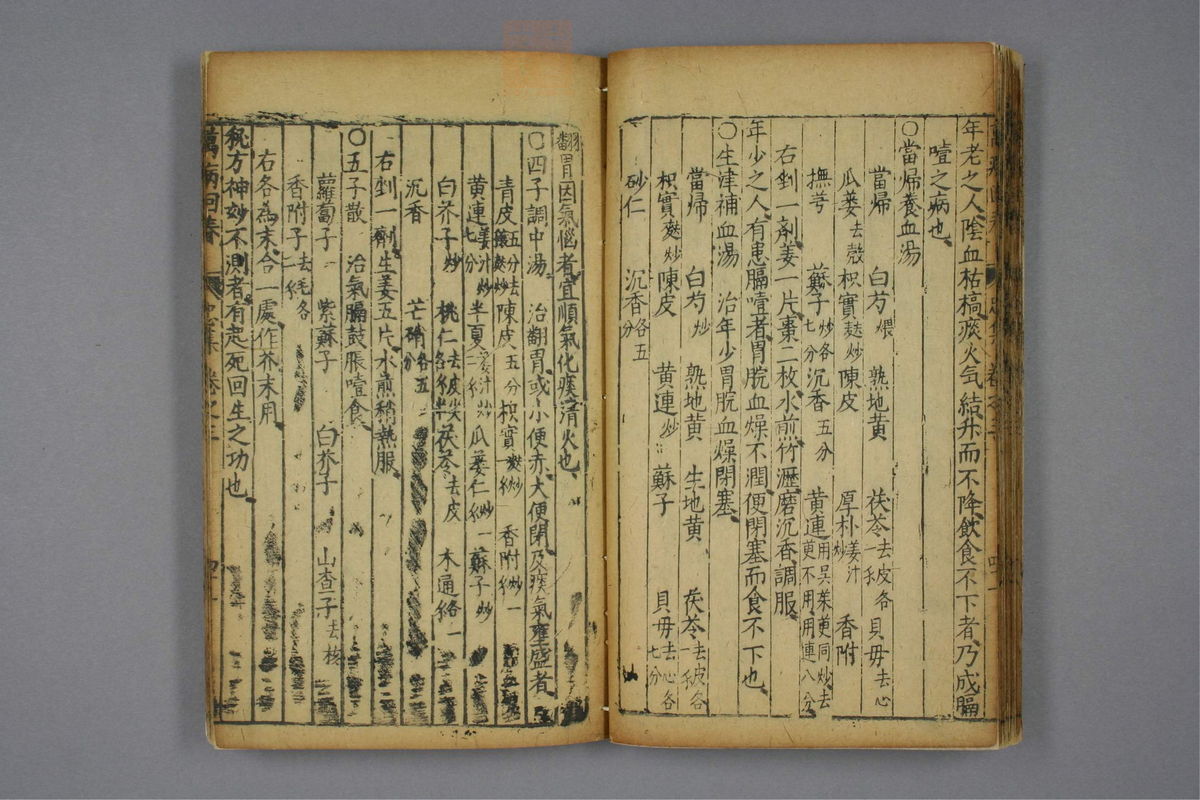 年老之人陰血枯槁痰火気結升而不降飲食不下者乃成膈
噎之病也
○當帰養血湯
當帰 白芍煨 熟地黄 茯苓去皮各一戔 貝母去心
瓜蔞去殻 枳實麩炒 陳皮 厚朴姜汁炒 香附
撫芎 蘇子炒各七分 沉香五分 黄連用吴茱萸同炒去萸不用用連八分
右剉一劑姜一片棗二枚水煎竹瀝磨沉香調服
年少之人有患膈噎者胃脘血燥不潤便閉塞而食不下也
○生津補血湯 治年少胃脘血燥閉塞
當帰 白芍炒 熟地黄 生地黄 茯苓去皮各一戔
枳實麩炒 陳皮 黄連炒 蘇子 貝母去心各七分
砂仁 沉香各五分
翻胃因氣惱者宜順氣化痰清火也
○四子調中湯 治翻胃或小便赤大便閉及痰氣壅盛者
青皮五分去穰麩炒 陳皮五分 枳實麩炒一戔 香附炒一戔
黄連姜汁炒七分 半夏姜汁炒二戔 瓜蔞仁炒一戔 蘇子炒
白芥子炒 桃仁去皮尖各戔半 茯苓去皮 木通各一戔
沉香 芒硝各五分
右剉一劑生姜五片水煎稍熱服
○五子散 治氣膈鼓脹噎食
蘿蔔子 紫蘇子 白芥子 山查子去核
香附子去毛各一戔
右各為末合一處作芥末用
秘方神妙不測者有起死回生之功也
萬病回春 卷之三